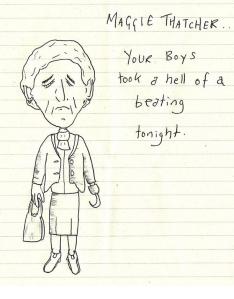 MAGGIE THATCHER..
YOUR BOYS
took a hell of a
beating
tonight.